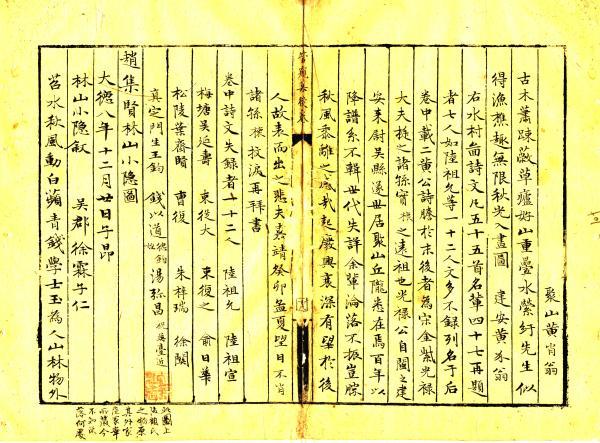 聚山黄肖翁
古木蕭疎蔽草廬好山重疊水縈紆先生似
得漁樵趣無限秋光入畫圖 建安黄公翁
右水村啚詩文凡五十五首名軰四十七再題
者七人如陸祖允等一十二人文多不録列名于后
卷中載二黄公詩牋於末後者為宋金紫光禄
大夫挺之諸孫實 之遠祖也光禄公自閩之建
安來尉吳縣遂世居聚山丘隴悉在焉百年以
降譜系不輯世代失詳余軰淪落不振豈勝
秋風黍離之 哉起廢興衰深有望於後
人故表而出之悲夫嘉靖癸卯孟夏望日不肖
諸孫 抆淚再拜書
卷中詩文失録者一十二人 陸祖允 陸祖宣
梅塘吳延壽 束從大 束復之 俞日華
松陵葉齋賢 曹復 朱梓瑞 徐關
真定門生王鈞 錢以道 湯彌昌
趙集賢林山小隱圖
大德八年十二月廿日子昂
林山小隱叙 吳郡徐霖子仁
苕水秋風動白蘋青錢學士玉為人山林物外
此圖上